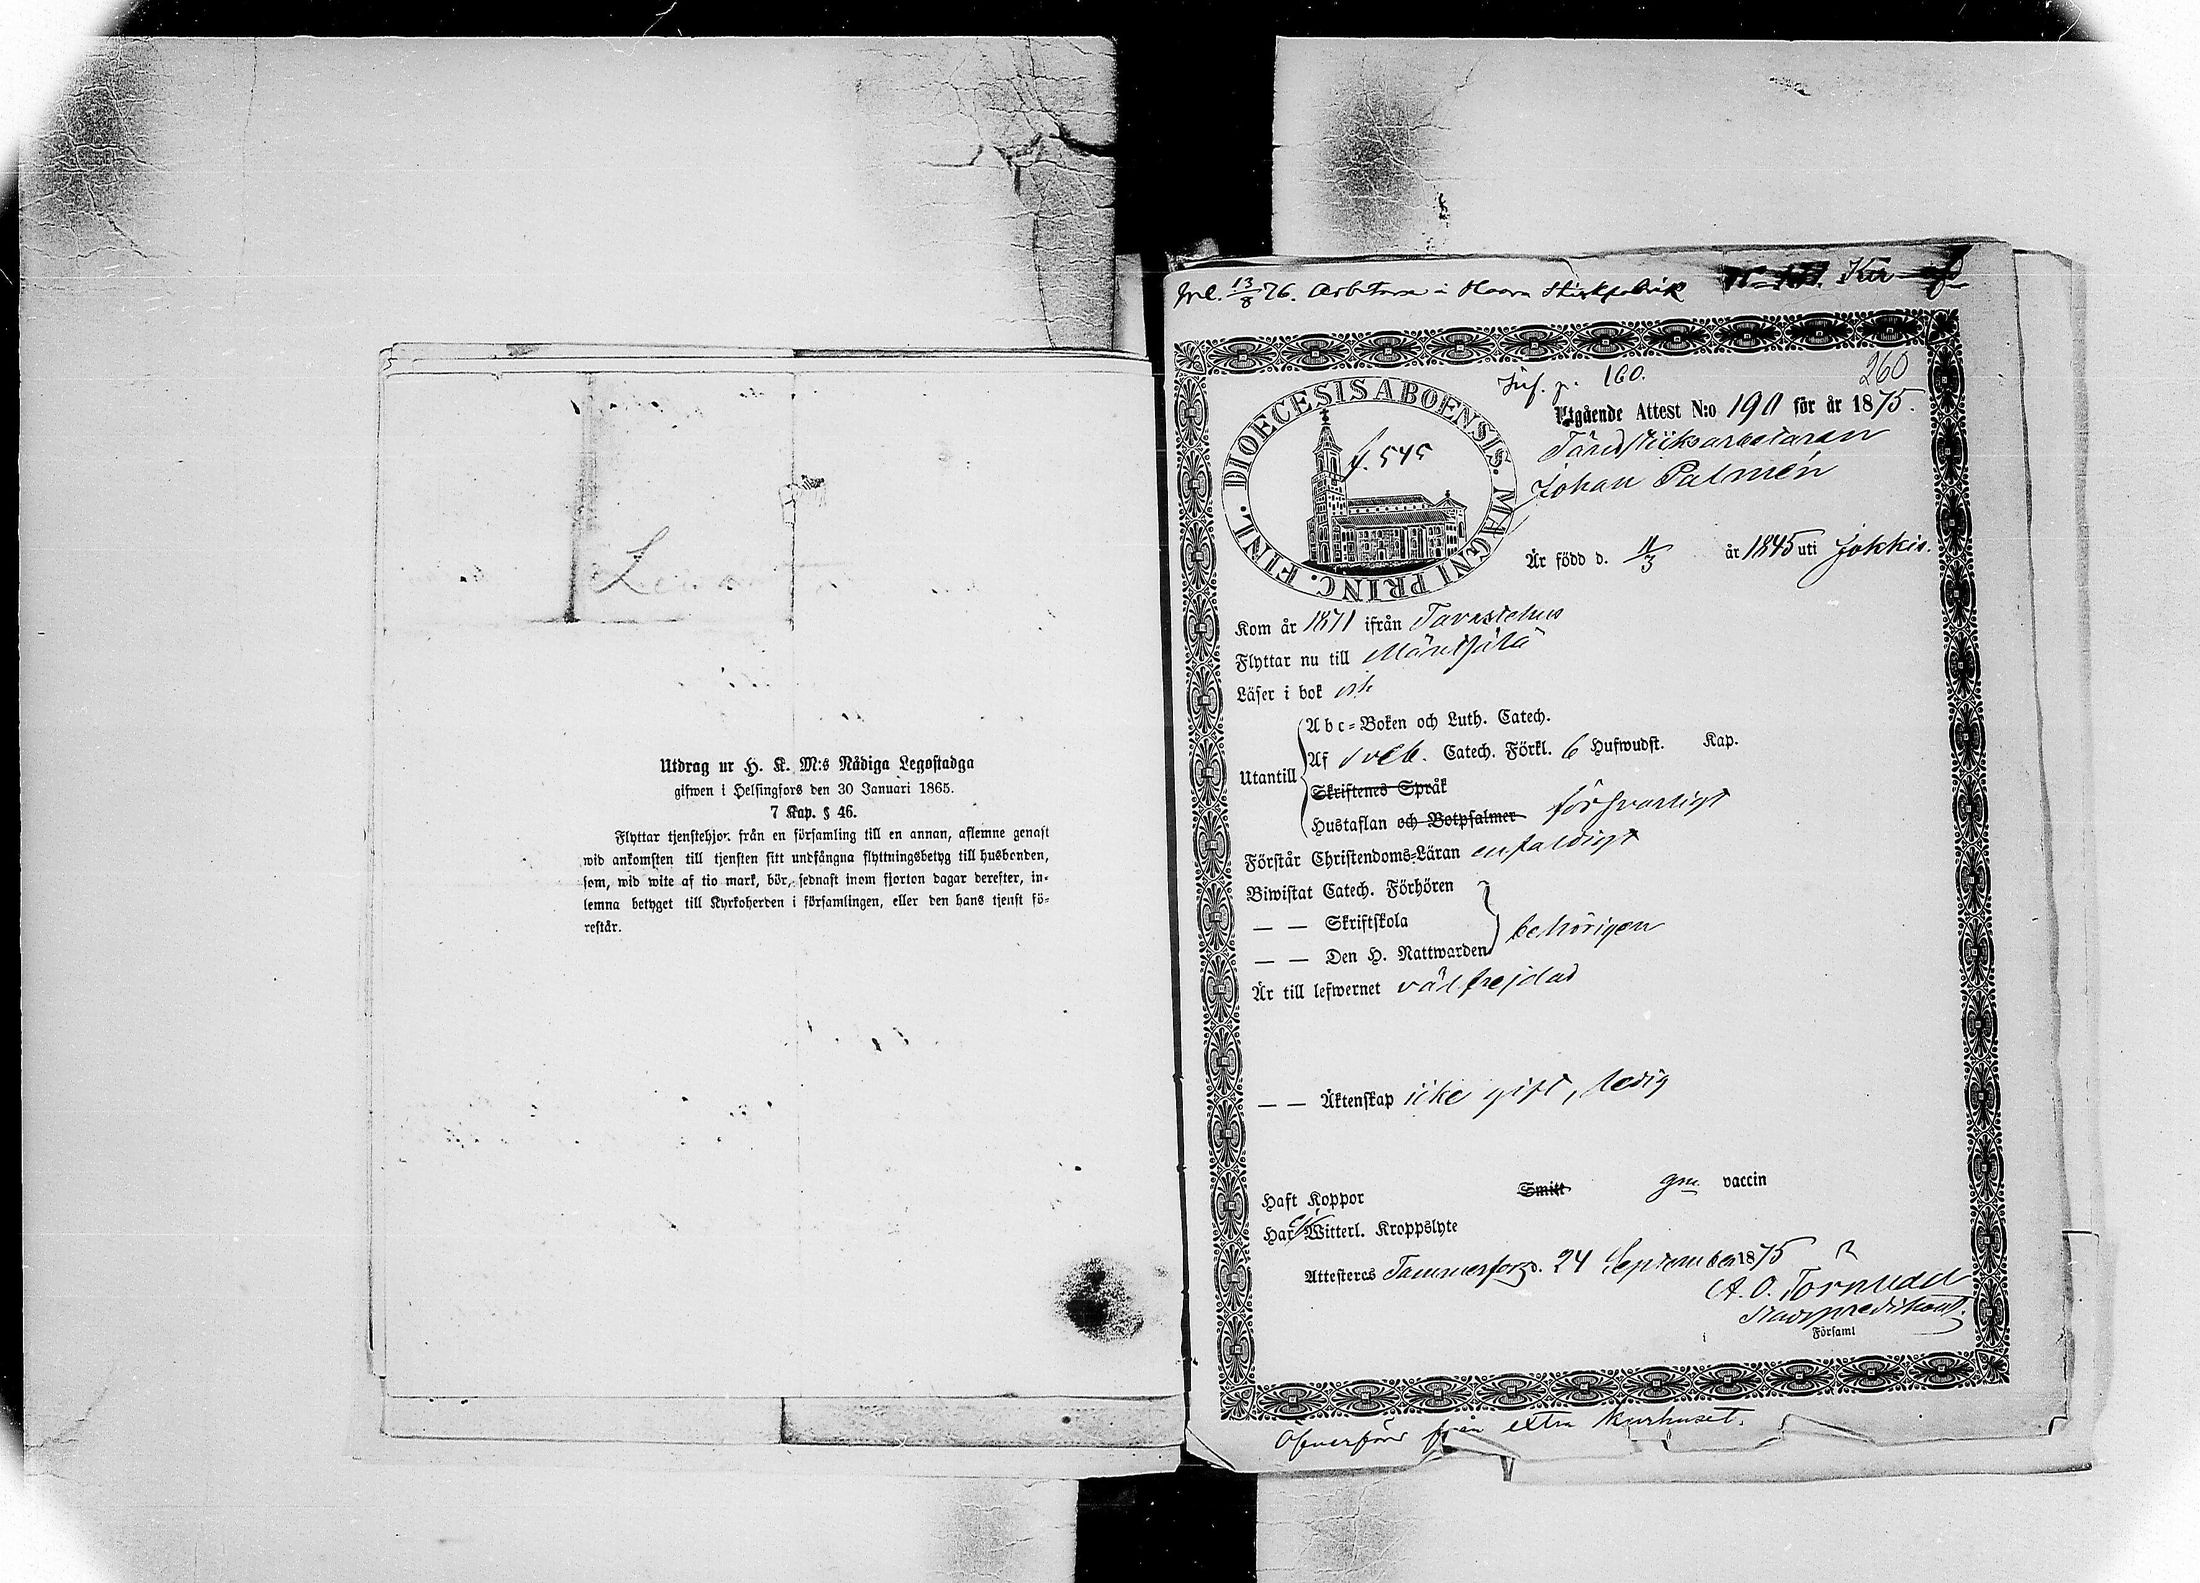 Utdrag ur H. K. M:s Nådiga Legostadga
gifwen i Helsingfors den 30 Januari 1865.
7 Kap. § 46.
Flyttar tjenstehjon från en församling till en annan, aflemne genast
wid ankomsten till tjensten sitt undfångna flyttningsbetyg till husbonden,
som, wid wite af tio mark, bör, sednast inom fjorton dagar derefter, in-
lemna betyget till Kyrkoherden i församlingen, eller den hans tjenst fö-
restår.
Inl. 13/8 76. Arbetare i
Inf. p. 160.
260
DIOECESIS ABOENSIS. MAGNI PRINC. FINL.
f. 545
Utgående Attest N:o 190 för år 1875.
Tändsticksarbetaren
Johan Palmén
Är född d. 11/3 år 1845 uti Jokkis.
Kom år 1871 ifrån Tavastehus
Flyttar nu till Mäntsälä
Läser i bok
Abc-Boken och Luth. Catech.
Utantill
Af Sveb. Catech. Förkl. 6 Hufwudst. Kap.
Skriftenes Språk
Hustaflan och Botpsalmer försvarligt
Förstår Christendoms-Läran enfaldigt
Biwistat Catech. Förhören
— — Skriftskola
— — Den H. Nattwarden behörigen
Är till lefwernet välfrejdad
— — Äktenskap icke gift, ledig
Haft Koppor Smitt gm. vaccin
Har ej Witterl. Kroppslyte
Attesteras Tammerfors d. 24 September 1875
A. O. Törnudd
Stadspredikant.
i Församl
Öfverförd från extra kurhuset.